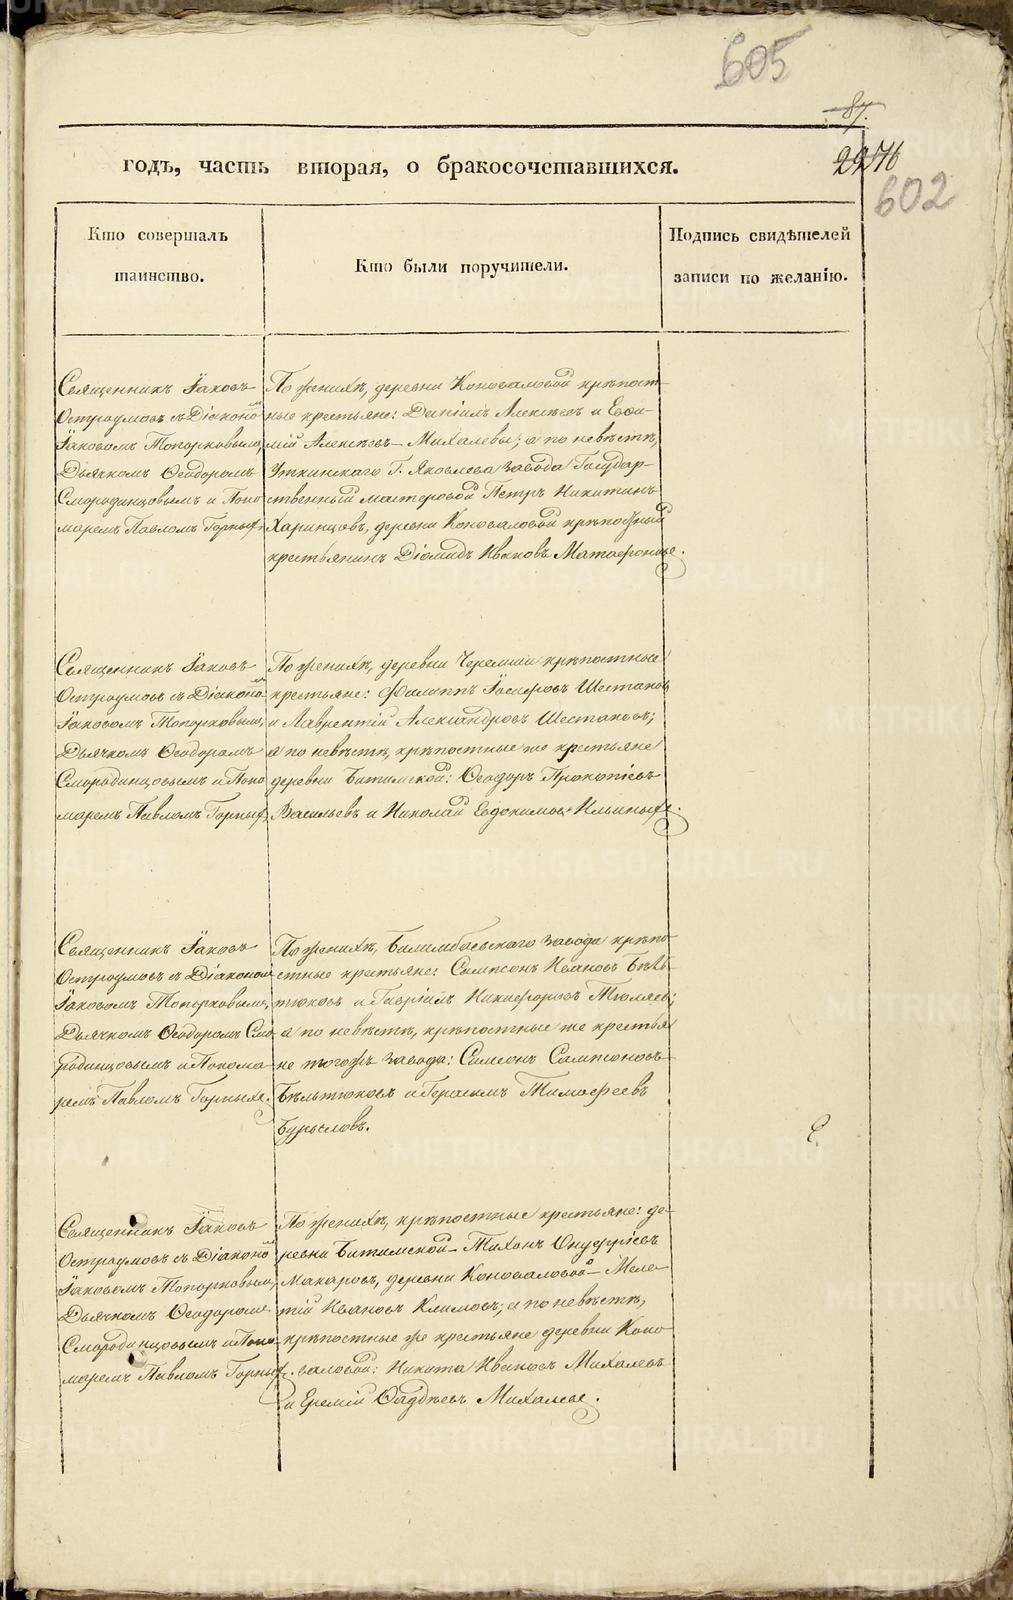 605
87.
2276
602
годъ, часть вторая, о бракосочетавшихся.
Кто совершалъ
таинство.
Кто были поручители.
Подпись свидѣтелей
записи по желанію.
Священникъ Іаковъ
Остроумовъ съ Діакономъ
Іаковомъ Топорковымъ,
Дьячкомъ Ѳеодоромъ
Смородинцовымъ и Поно-
маремъ Павломъ Горныхъ.
По женихѣ, деревни Коноваловой крѣпост-
ные крестьяне: Даніилъ Алексѣевъ и Евѳи-
мій Алексѣевъ Михалевы; а по невѣстѣ,
Уткинскаго Г. Яковлева завода Государ-
ственный мастеровой Петръ Никитинъ
Харинцовъ, деревни Коноваловой крѣпостный
крестьянинъ Діомидъ Ивановъ
Священникъ Іаковъ
Остроумовъ съ Діакономъ
Іаковомъ Топорковымъ,
Дьячкомъ Ѳеодоромъ
Смородинцовымъ и Поно
маремъ Павломъ Горныхъ.
По женихѣ, деревни Черемши крѣпостные
крестьяне: Филиппъ Іосифовъ Шестаковъ
и Лаврентій Александровъ Шестаковъ;
а по невѣстѣ, крѣпостные же крестьяне
деревни Битимской: Ѳеодоръ Прокопіевъ
Васильевъ и Николай Евдокимовъ Ильиныхъ.
Священникъ Іаковъ
Остроумовъ съ Діакономъ
Іаковомъ Топорковымъ,
Дьячкомъ Ѳеодоромъ Смо-
родинцовымъ и Понома-
ремъ Павломъ Горныхъ.
По женихѣ, Билимбаевскаго завода крѣпо-
стные крестьяне: Сампсонъ Ивановъ Бѣль-
тюковъ и Гавріилъ Никифоровъ Тюляевъ;
а по невѣстѣ, крѣпостные же крестья
не тогожъ завода: Симеонъ Сампсоновъ
Бѣльтюковъ и Герасимъ Тимофеевъ
Бурысловъ.
Священникъ Іаковъ
Остроумовъ съ Діакономъ
Іаковомъ Топорковымъ,
Дьячкомъ Ѳеодоромъ
Смородинцовымъ и Поно-
маремъ Павломъ Горныхъ.
По женихѣ, крѣпостные крестьяне: де-
ревни Битимской Тихонъ Онуфріевъ
Макаровъ, деревни Коноваловой Меле-
тій Ивановъ Климовъ; а по невѣстѣ,
крѣпостные же крестьяне деревни Коно
валовой: Никита Ивановъ Михалевъ
и Еремій Ѳаддѣевъ Михалевы.